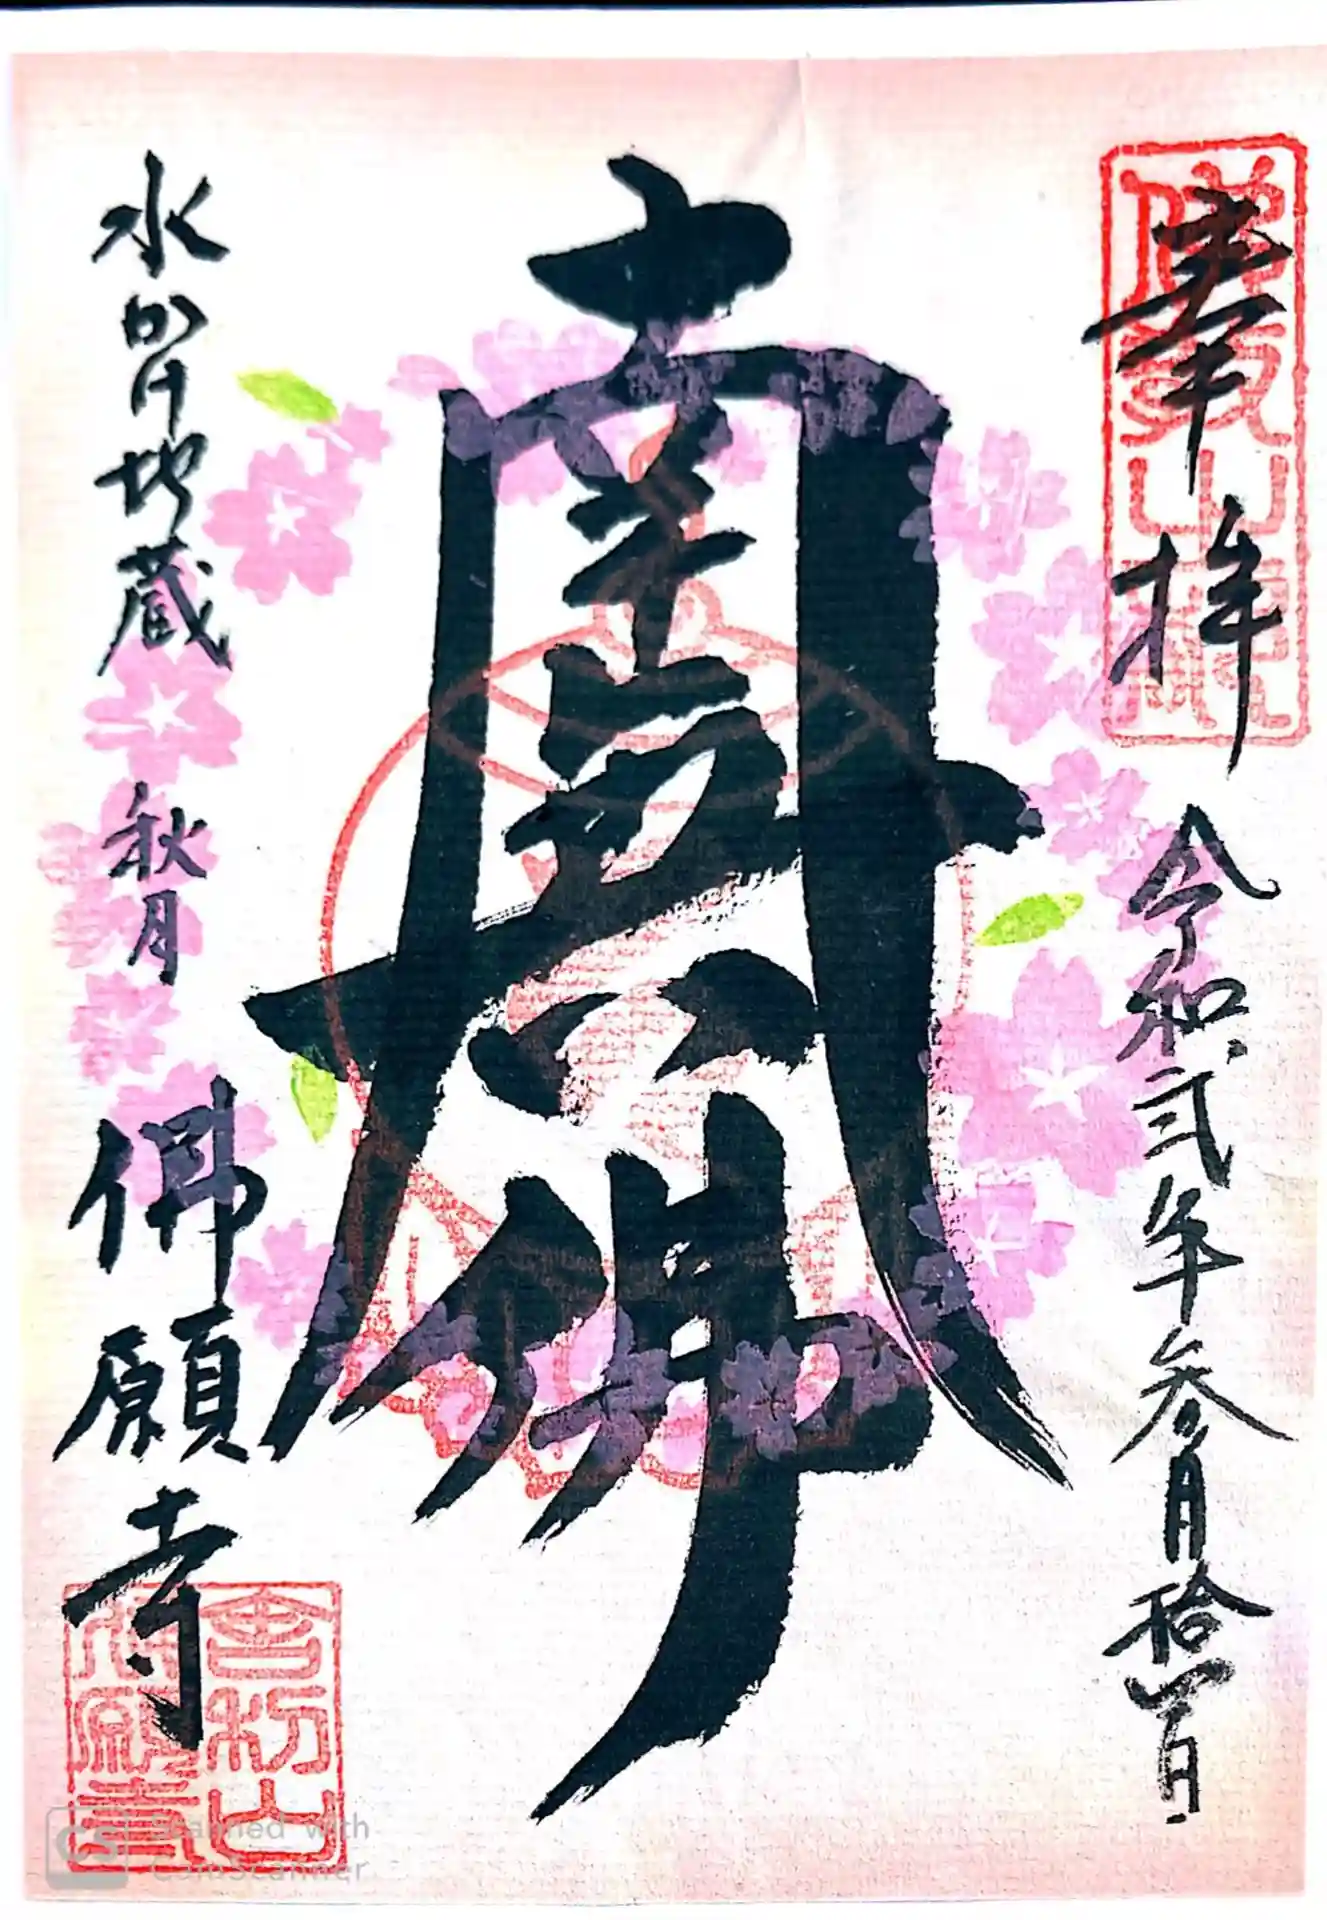 奉拝
令和弐年参月拾
南無佛
水かけ地蔵
秋月
佛願寺
舎利山
佛願寺
CS
Scanned with
CamScanner